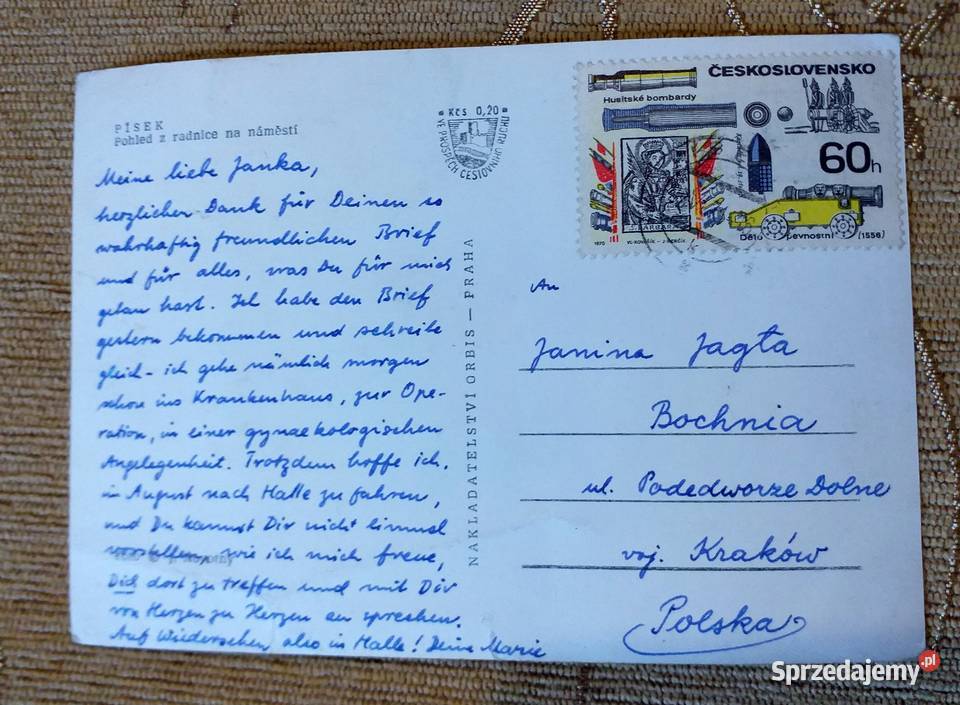 PÍSEK
Pohled z radnice na náměstí
Meine liebe Janka,
herzlichen Dank für Deinen so
wahrhaftig freundlichen Brief
und für alles, was Du für mich
getan hast. Ich habe den Brief
gestern bekommen und schreibe
gleich - ich gehe nämlich morgen
schon ins Krankenhaus, zur Ope-
ration, in einer gynaekologischen
Angelegenheit. Trotzdem hoffe ich,
im August nach Halle zu fahren,
und Du kannst Dir nicht einmal
vorstellen, wie ich mich freue,
Dich dort zu treffen und mit Dir
von Herzen zu Herzen zu sprechen.
Auf Wiedersehen also in Halle! Deine Marie
Kčs 0,20
VE PROSPĚCH CESTOVNÍHO RUCHU
NAKLADATELSTVÍ ORBIS — PRAHA
ČESKOSLOVENSKO
Husitské bombardy
60h
S. BARBARA
Dělo pevnostní (1556)
1970
An
Janina Jagła
Bochnia
ul. Podedworze Dolne
woj. Kraków
Polska
Sprzedajemy.pl